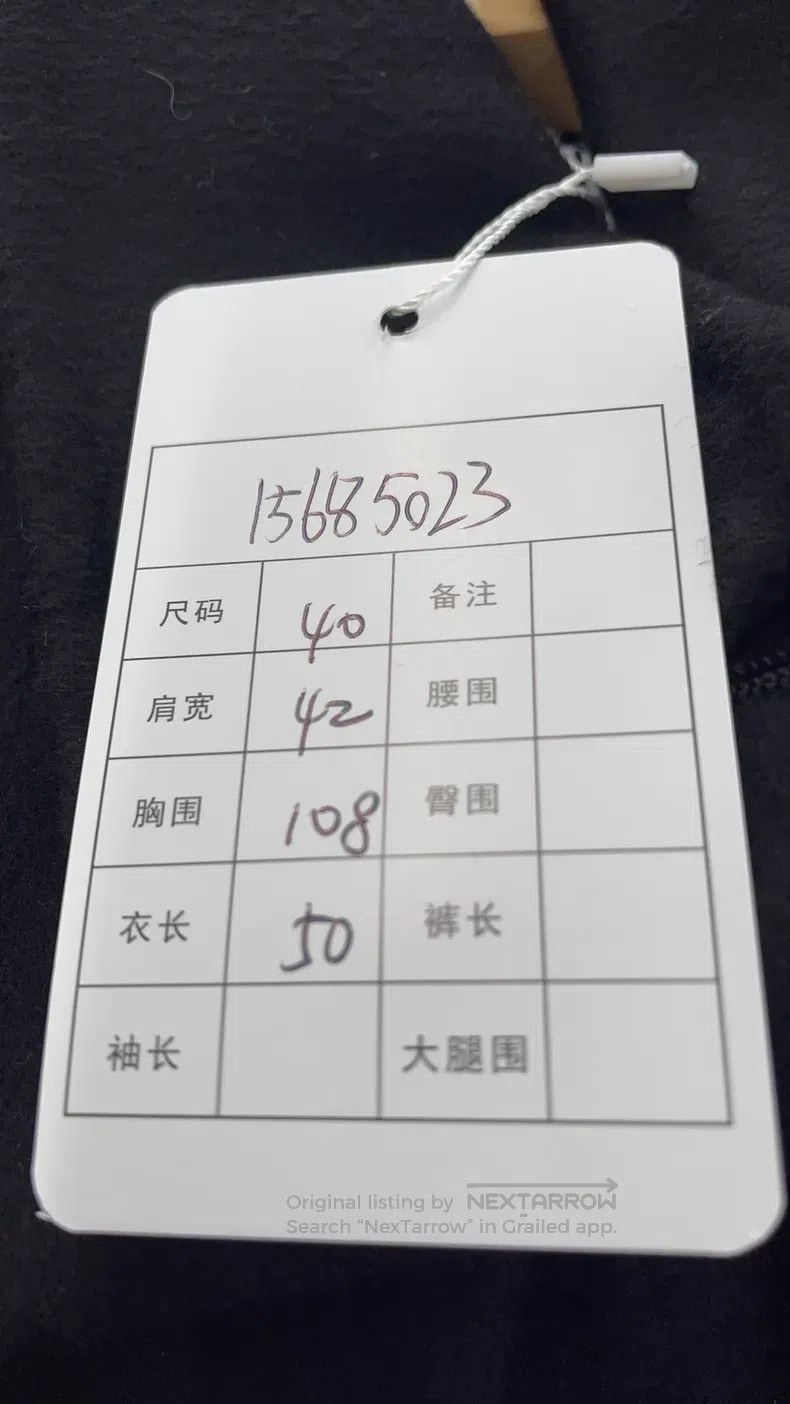 15685023
尺码 40 备注
肩宽 42 腰围
胸围 108 臀围
衣长 50 裤长
袖长 大腿围
Original listing by NEXTARROW
Search “NexTarrow” in Grailed app.